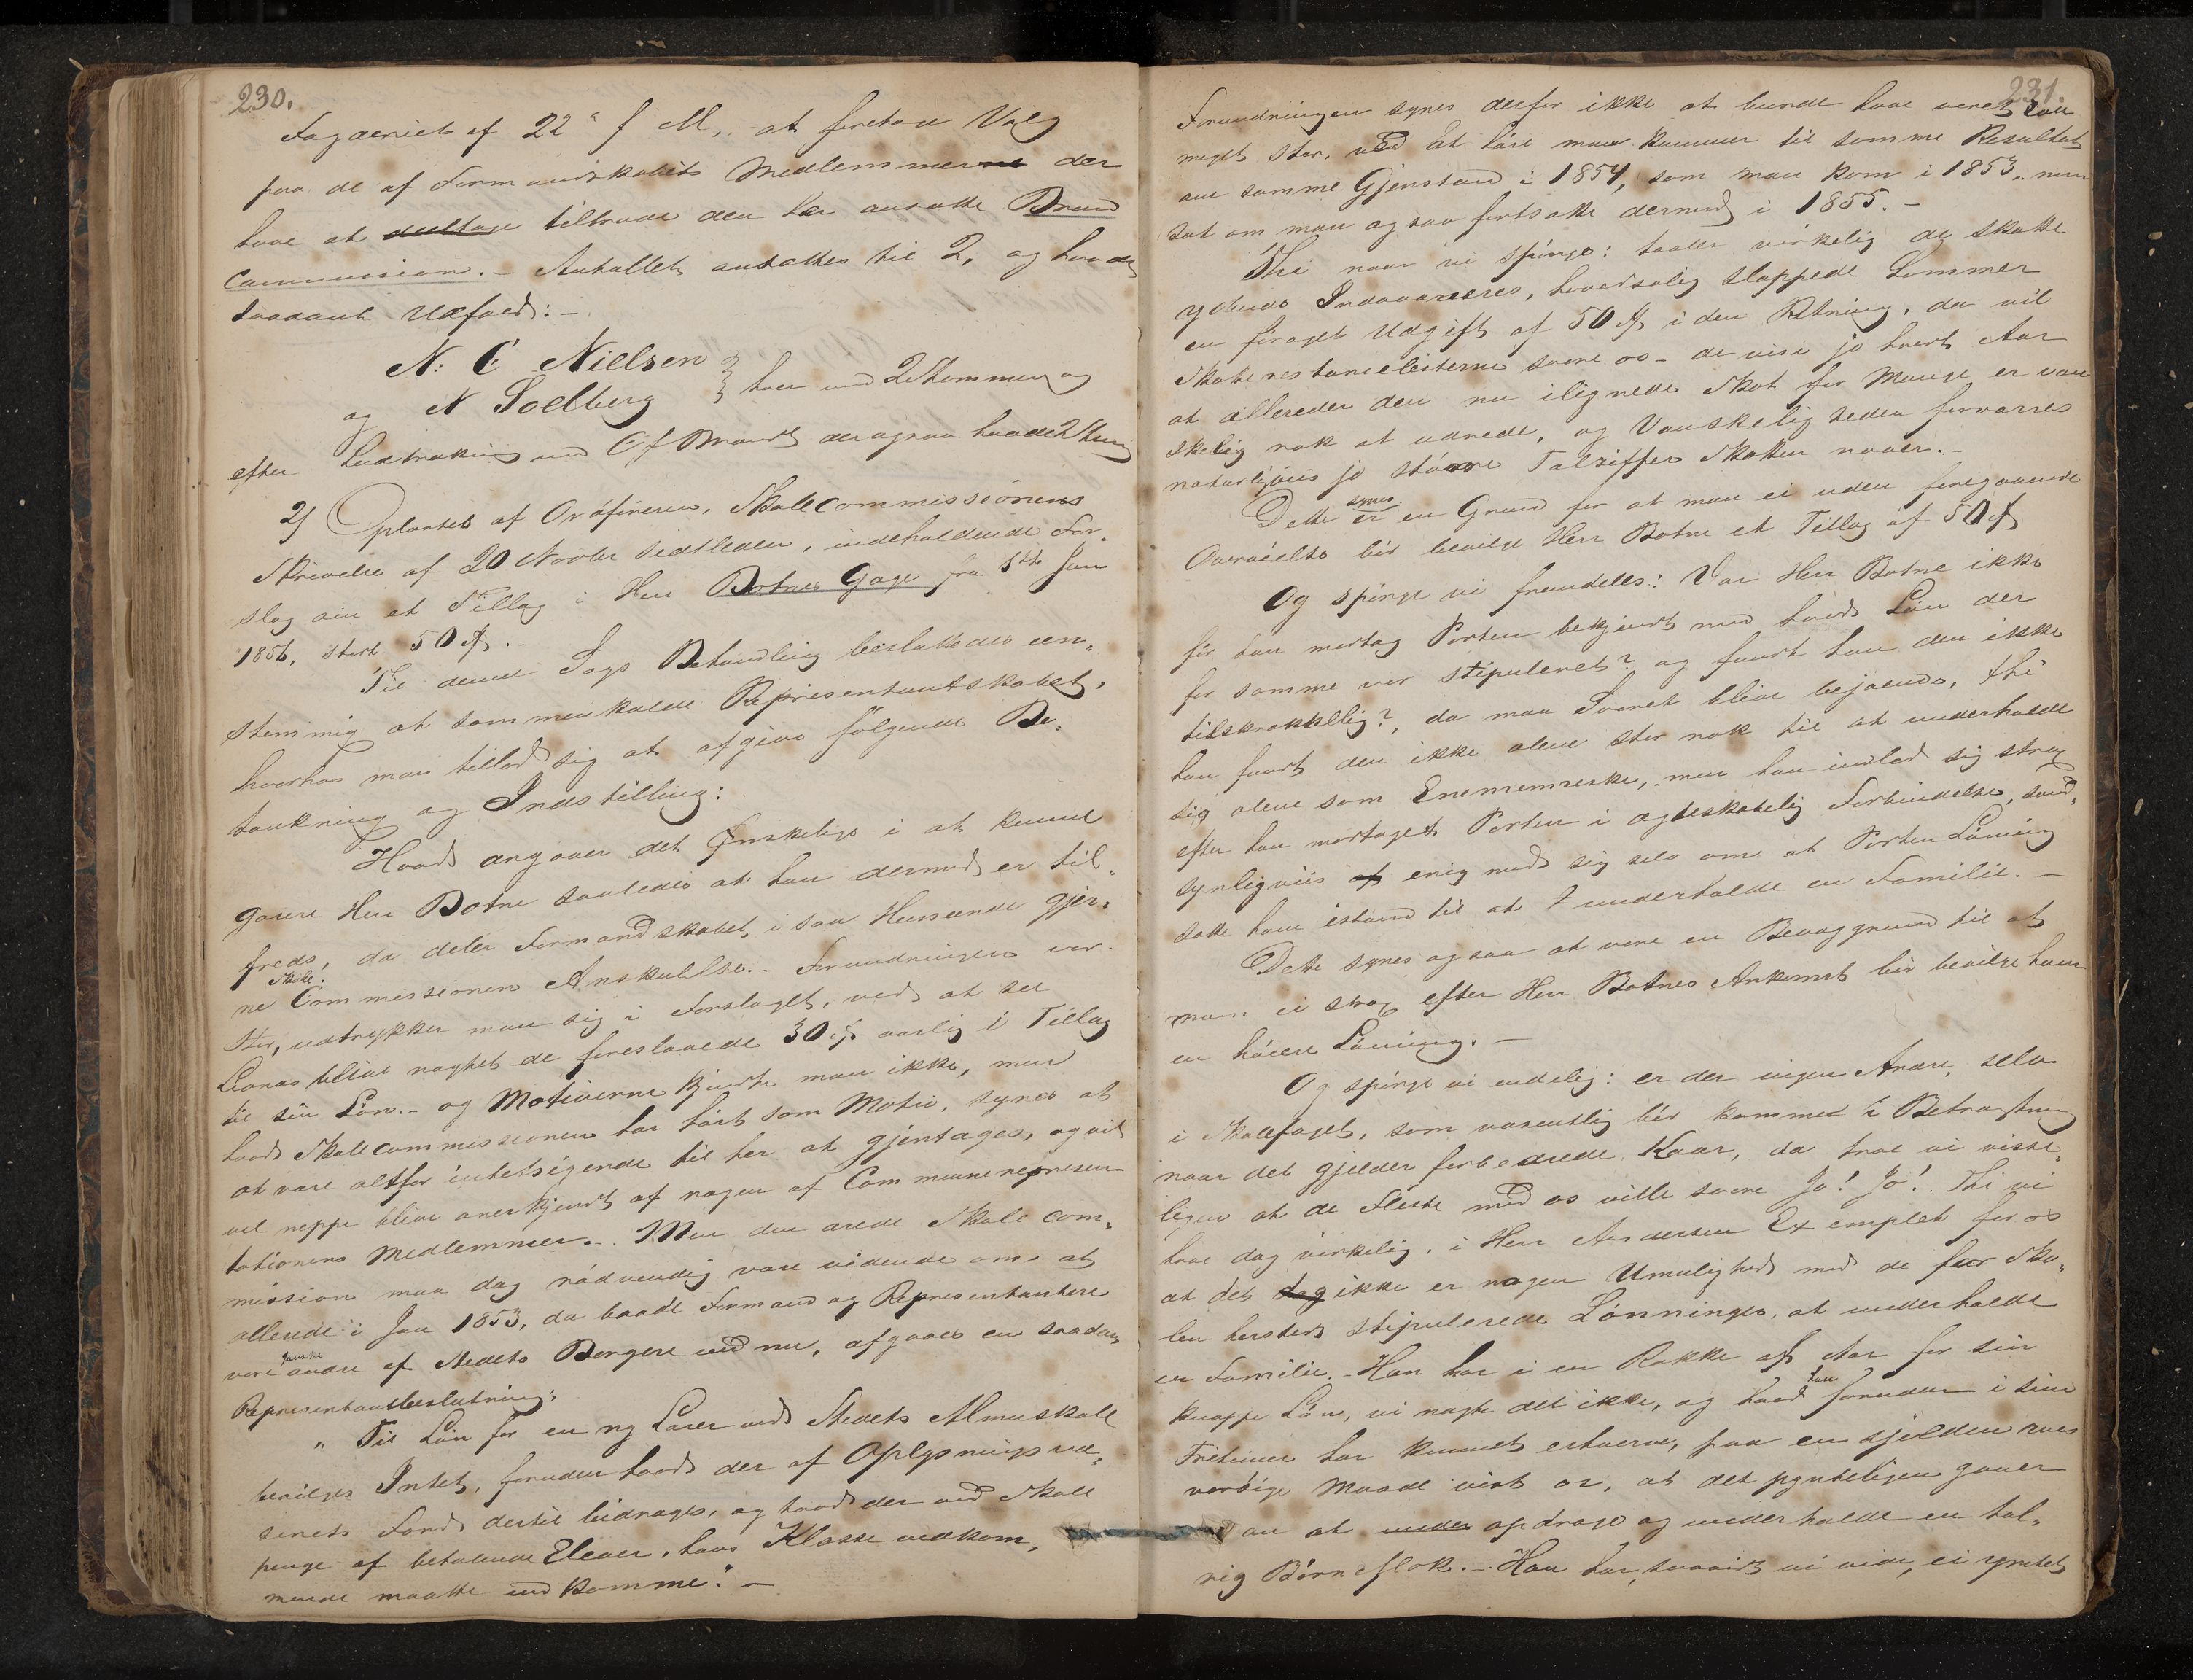 230.
Fogderiet af 22de f M., at foretage Valg
paa de af Formandskabets Medlemmerne der
have at deeltage tiltræde den her ansatte Brand
Commission. – Antallet ansattes til 2, og hvorles
saadant Udfald: –
N. C Nielsen
og N Solberg } hver med 2 Stemmer og
efter Lodtrækning med C f Brandt der ogsaa havde 2 Stem
2) Oplæstes af Ordføreren, Skolecommissionens
Skrivelse af 20 Novbr sidstleden, indeholdende For-
slag om et Tillæg i Herr Botnes Gage fra 1ste Jan
1856, stort 50 Spd. –
Til denne Sags Behandling besluttedes een-
stemmig at sammenkalde Repræsentantskabet,
hvorhos man tillod sig at afgive følgende Be-
tænkning og Indstilling:
Hvad angaaer det Ønskelige i at kunne
gavne Herr Botne saaledes at han dermed er til-
freds, da deler Formandskabet i saa Henseende gjer-
ne Skole Commissionens Anskuelse. – Forundringen var
stor, udtrykker man sig i Forslaget, ved at see
Leonas blive nægtet de foreslaaede 30 Spd aarlig i Tillæg
til sin Løn. – og Motiverne kjendte man ikke, men
hvad Skolecommissionen har hørt som Motiv, synes at
at være altfor intetsigende til her at gjentages, og vil
vel neppe blive anerkjendt af nogen af Communerepræsen-
tationens Medlemmer. – Men den ærede Skolecom-
mission maa dog nødvendig være vidende om at
allerede i Jan 1853, da baade Formænd og Repræsentantere
vare ganske andre af Stedets Borgere end nu, afgaves en saadan
Repræsentantbeslutning:
"Til Løn for en ny Lærer ved Stedets Almuskole
bevilges Intet, foruden hvad der af Oplysningsvæ-
senets Fond dertil bidrages, og hvad der ved Skole
penge af betalende Elever, hans Klasse vedkom-
mende maatte indkomme." –
231.
Forundringen synes derfor ikke at burde have været saa
meget stor, ved at høre man kommer til samme Resultat
om samme Gjenstand i 1854, som man kom i 1853, men
sat om man ogsaa fortsatte dermed i 1855. –
Thi naar vi spørge: taaler virkelig de skatte
ydende Indvaaneres, hovedsalig slappede Lommer
en forøget Udgift af 50 Spd i den Retning, da vil
Skatterestancelisterne svare os – de vise jo hvert Aar
at allerede den nu ilignede Skat for Mange er van
skelig nok at udrede, og Vanskeligheden forværres
naturligviis jo større Talziffer Skatten naaer. –
Dette er synes en Grund for at man ei uden foregaaende
Overveielse bør bevilge Herr Botne et Tillæg af 50 Spd
Og spørge vi fremdeles: Var Herr Botne ikke
før han modtog Posten bekjendt med hvad Løn der
for samme var stipuleret? og fandt han den ikke
tilstrækkelig?, da maa Svaret blive bejaende, thi
han fandt den ikke alene stor nok til at underholde
sig alene som Enemenneske, – men han indlod sig strax
efter han modtaget Posten i ægteskabelig Forbindelse, sand-
synligviis af enig med sig selv om at Posten Lønning
satte ham istand til at underholde en Familie. –
Dette synes ogsaa at være en Bevæggrund til at
man ei strax efter Herr Botnes Ankomst bør bevilge ham
en høiere Lønning. –
Og spørge vi endelig: er der ingen Andre, selv
i Skolefaget, som væsentlig bør komme i Betragtning
naar det gjelder forbedrede Kaar, da troe vi visse-
ligen at de Fleste med os ville svare Jo! Jo! Thi vi
have dog virkelig i Herr Andersen Exemplet for os
at det dog ikke er nogen Umulighed med de for Sko-
len hersteds stipulerede Lønninger, at underholde
en Familie. – Han har i en Række af Aar for sin
knappe Løn, vi nægte det ikke, og hvad han foruden i sine
Fritimer har kunnet erhverve, paa en sjelden roes
værdige Maade viist os, at det pynteligen gaaer
an at under opdrage og underholde en tal-
rig Børneflok. – Han har, saavidt vi vide, ei ymtet